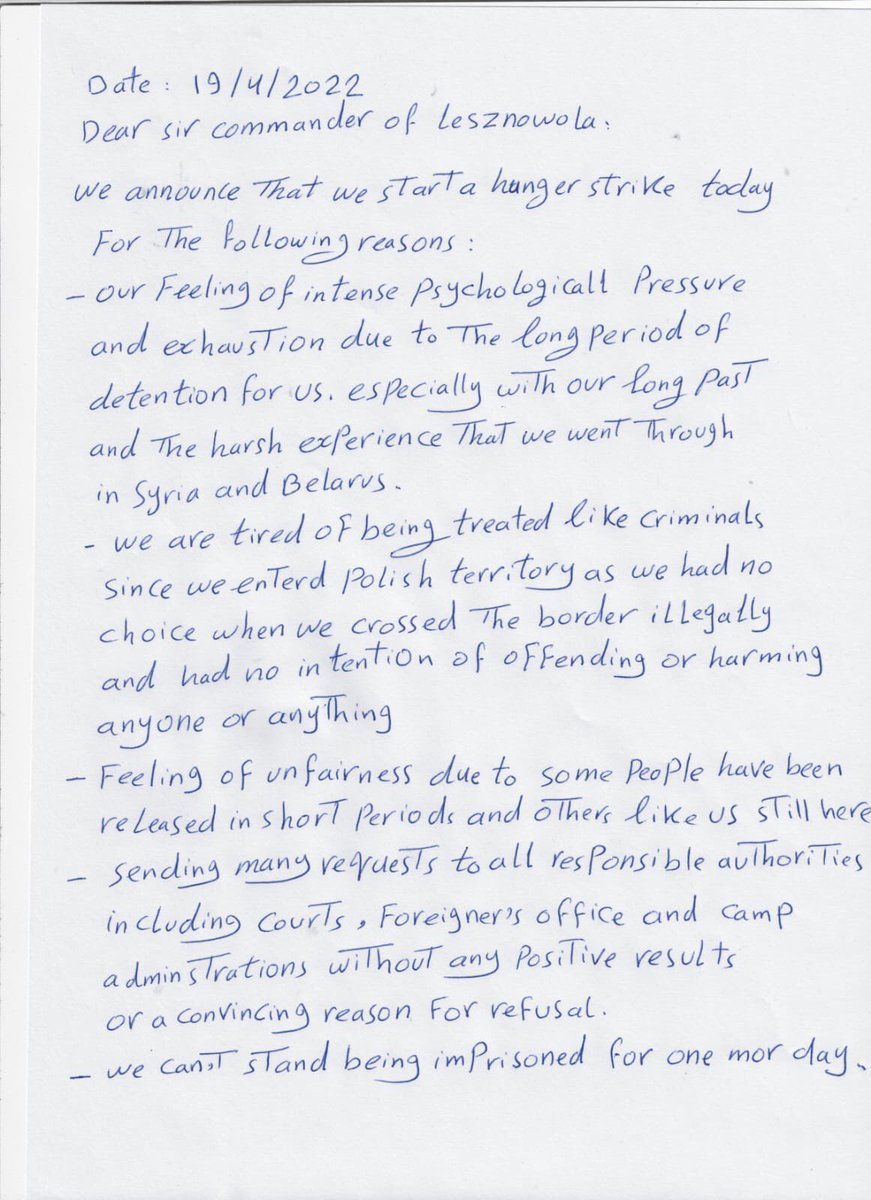 Date : 19/4/2022
Dear sir commander of Lesznowola.
we announce that we start a hunger strike today
For the following reasons :
- our Feeling of intense Psychologicall Pressure
and exhaustion due to the long period of
detention for us. especially with our long past
and the harsh experience that we went through
in Syria and Belarus.
- we are tired of being treated like criminals
since we enterd polish territory as we had no
choice when we crossed the border illegally
and had no intention of offending or harming
anyone or anything
- Feeling of unfairness due to some people have been
released in short periods and others like us still here
- sending many requests to all responsible authorities
including courts, Foreigner's office and camp
adminstrations without any positive results
or a convincing reason for refusal.
- we can't stand being imprisoned for one mor day.